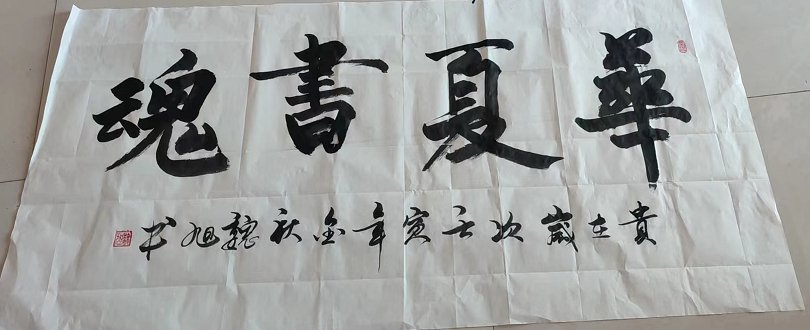 華夏書魂
貴在歲次壬寅年金秋魏旭书